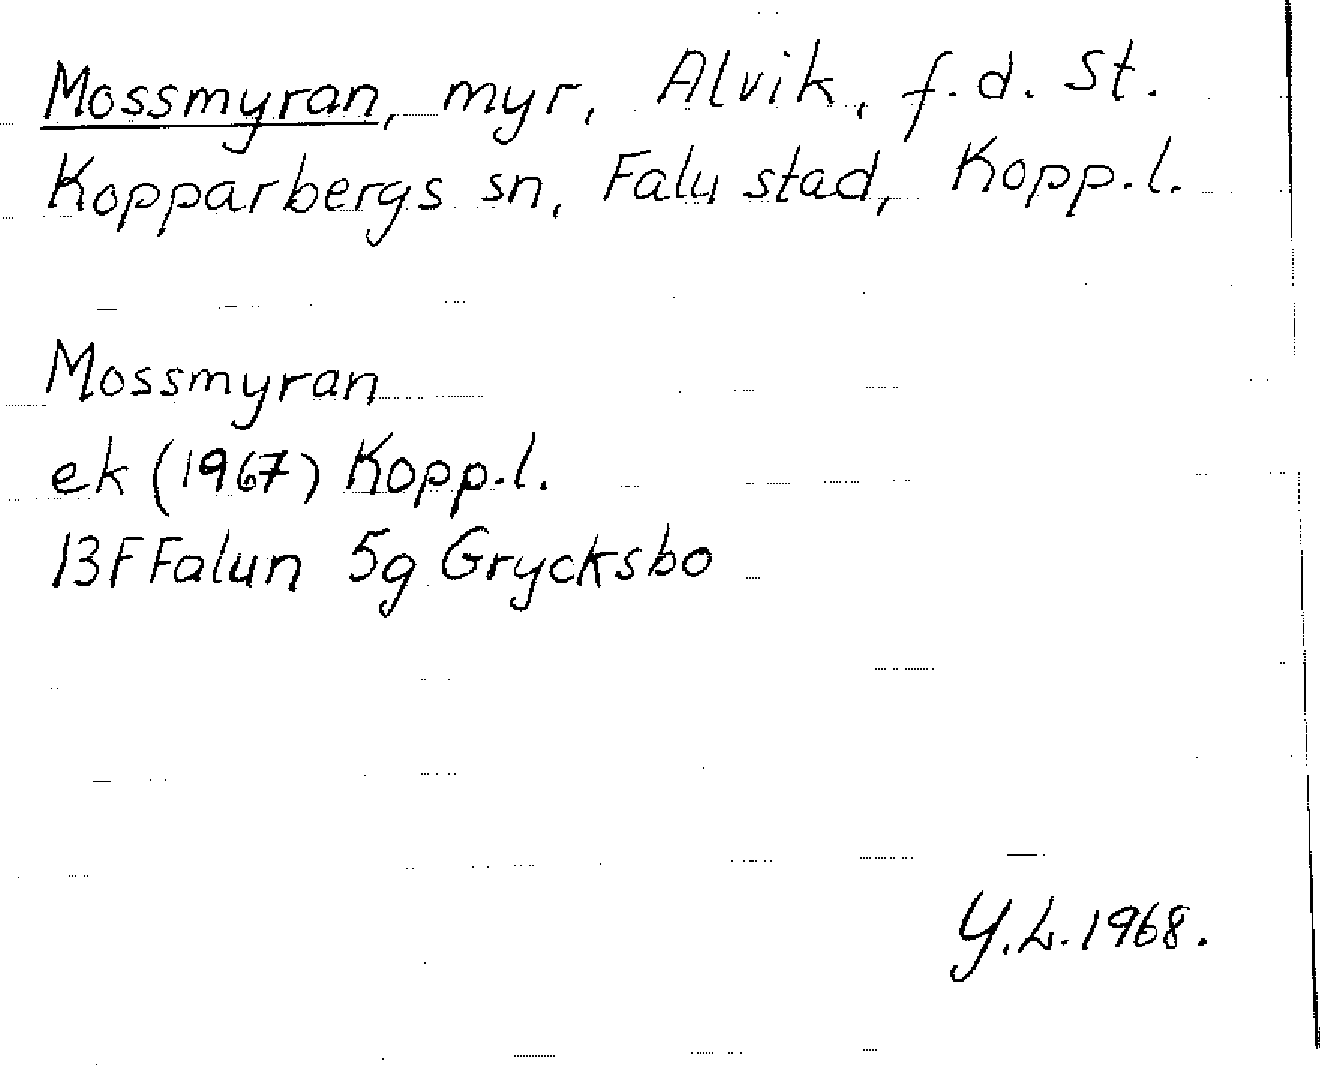 Mossmyran, myr, Alvik, f.d. St.
Kopparbergs sn, Falu stad, Kopp.l.
Mossmyran
ek (1967) Kopp.l.
13F Falun 5g Grycksbo
Y.L. 1968.